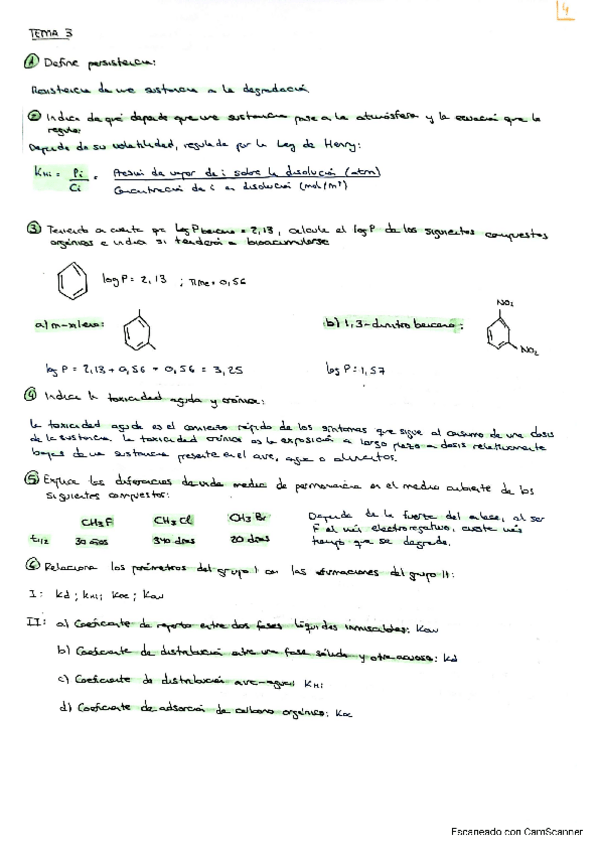 4
TEMA 3
① Define persistencia:
Resistencia de una sustancia a la degradación
② Indica de qué depende que una sustancia pase a la atmósfera y la ecuación que lo
regula:
Depende de su volatilidad, regulada por la Ley de Henry:
KHi = Pi/Ci = Presión de vapor de i sobre la disolución (atm) / Concentración de i en disolución (mol/m³)
③ Teniendo en cuenta que log P benceno = 2,13, calcula el log P de los siguientes compuestos
orgánicos e indica si tenderán a bioacumularse
log P = 2,13 ; πMe = 0,56
a) m-xileno:
b) 1,3-dinitrobenceno:
NO2
NO2
log P = 2,13 + 0,56 + 0,56 = 3,25
log P = 1,57
④ Indica la toxicidad aguda y crónica:
La toxicidad aguda es el comienzo rápido de los síntomas que sigue al consumo de una dosis
de la sustancia. La toxicidad crónica es la exposición a largo plazo a dosis relativamente
bajas de una sustancia presente en el aire, agua o alimentos.
⑤ Explica las diferencias de vida media de permanencia en el medio ambiente de los
siguientes compuestos:
CH3F CH3Cl CH3Br
t1/2 30 años 340 días 20 días
Depende de la fuerza del enlace, al ser
F el más electronegativo, cuesta más
tiempo que se degrade.
⑥ Relaciona los parámetros del grupo I con las afirmaciones del grupo II:
I: Kd ; KHi ; Koc ; Kow
II: a) Coeficiente de reparto entre dos fases líquidas inmiscibles: Kow
b) Coeficiente de distribución entre una fase sólida y otra acuosa: Kd
c) Coeficiente de distribución aire-agua: KHi
d) Coeficiente de adsorción de carbono orgánico: Koc
Escaneado con CamScanner